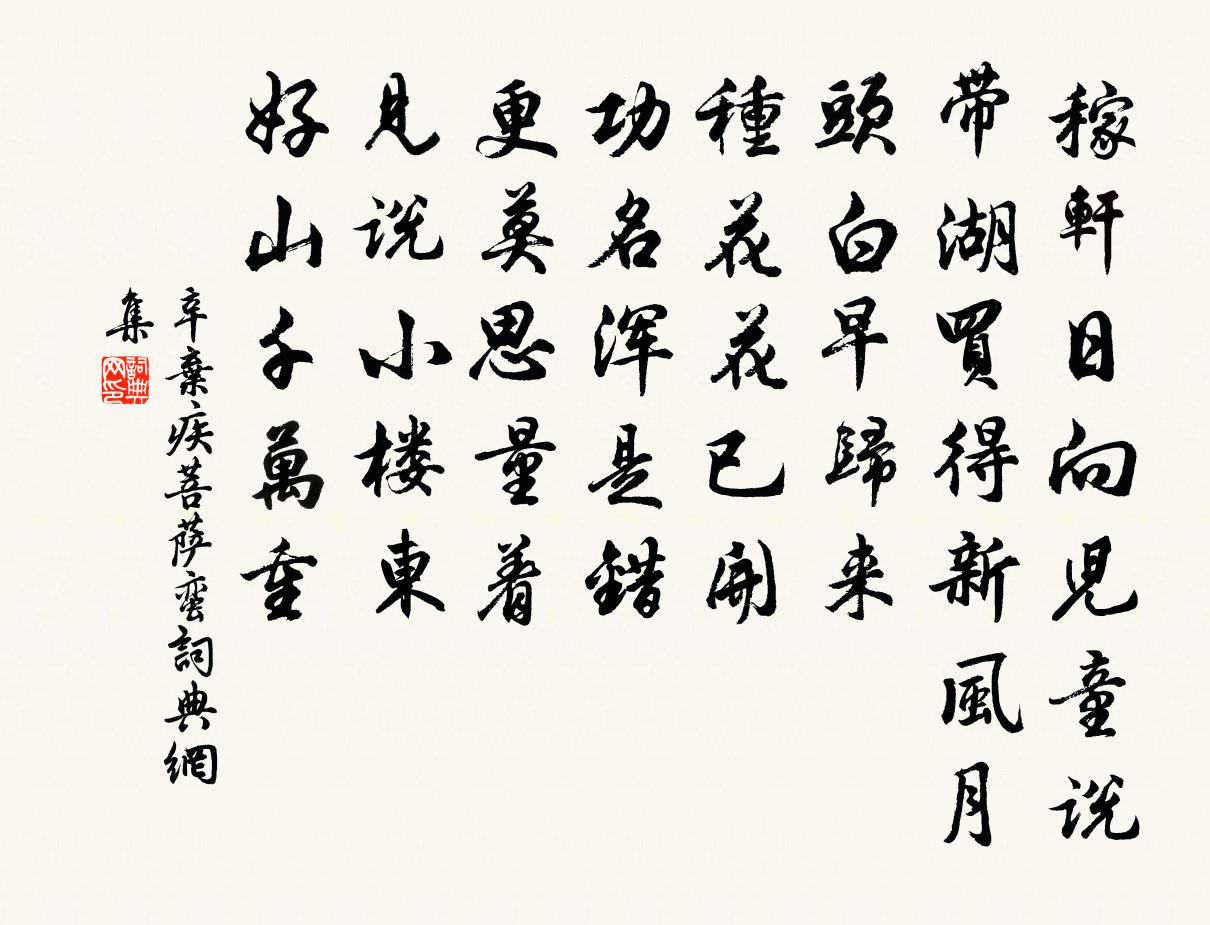 稼軒日向児童説
帯湖買得新風月
頭白早歸来
種花花已開
功名浑是錯
更莫思量着
見説小楼東
好山千萬重
辛棄疾菩萨蛮詞典網
集
詞典网印